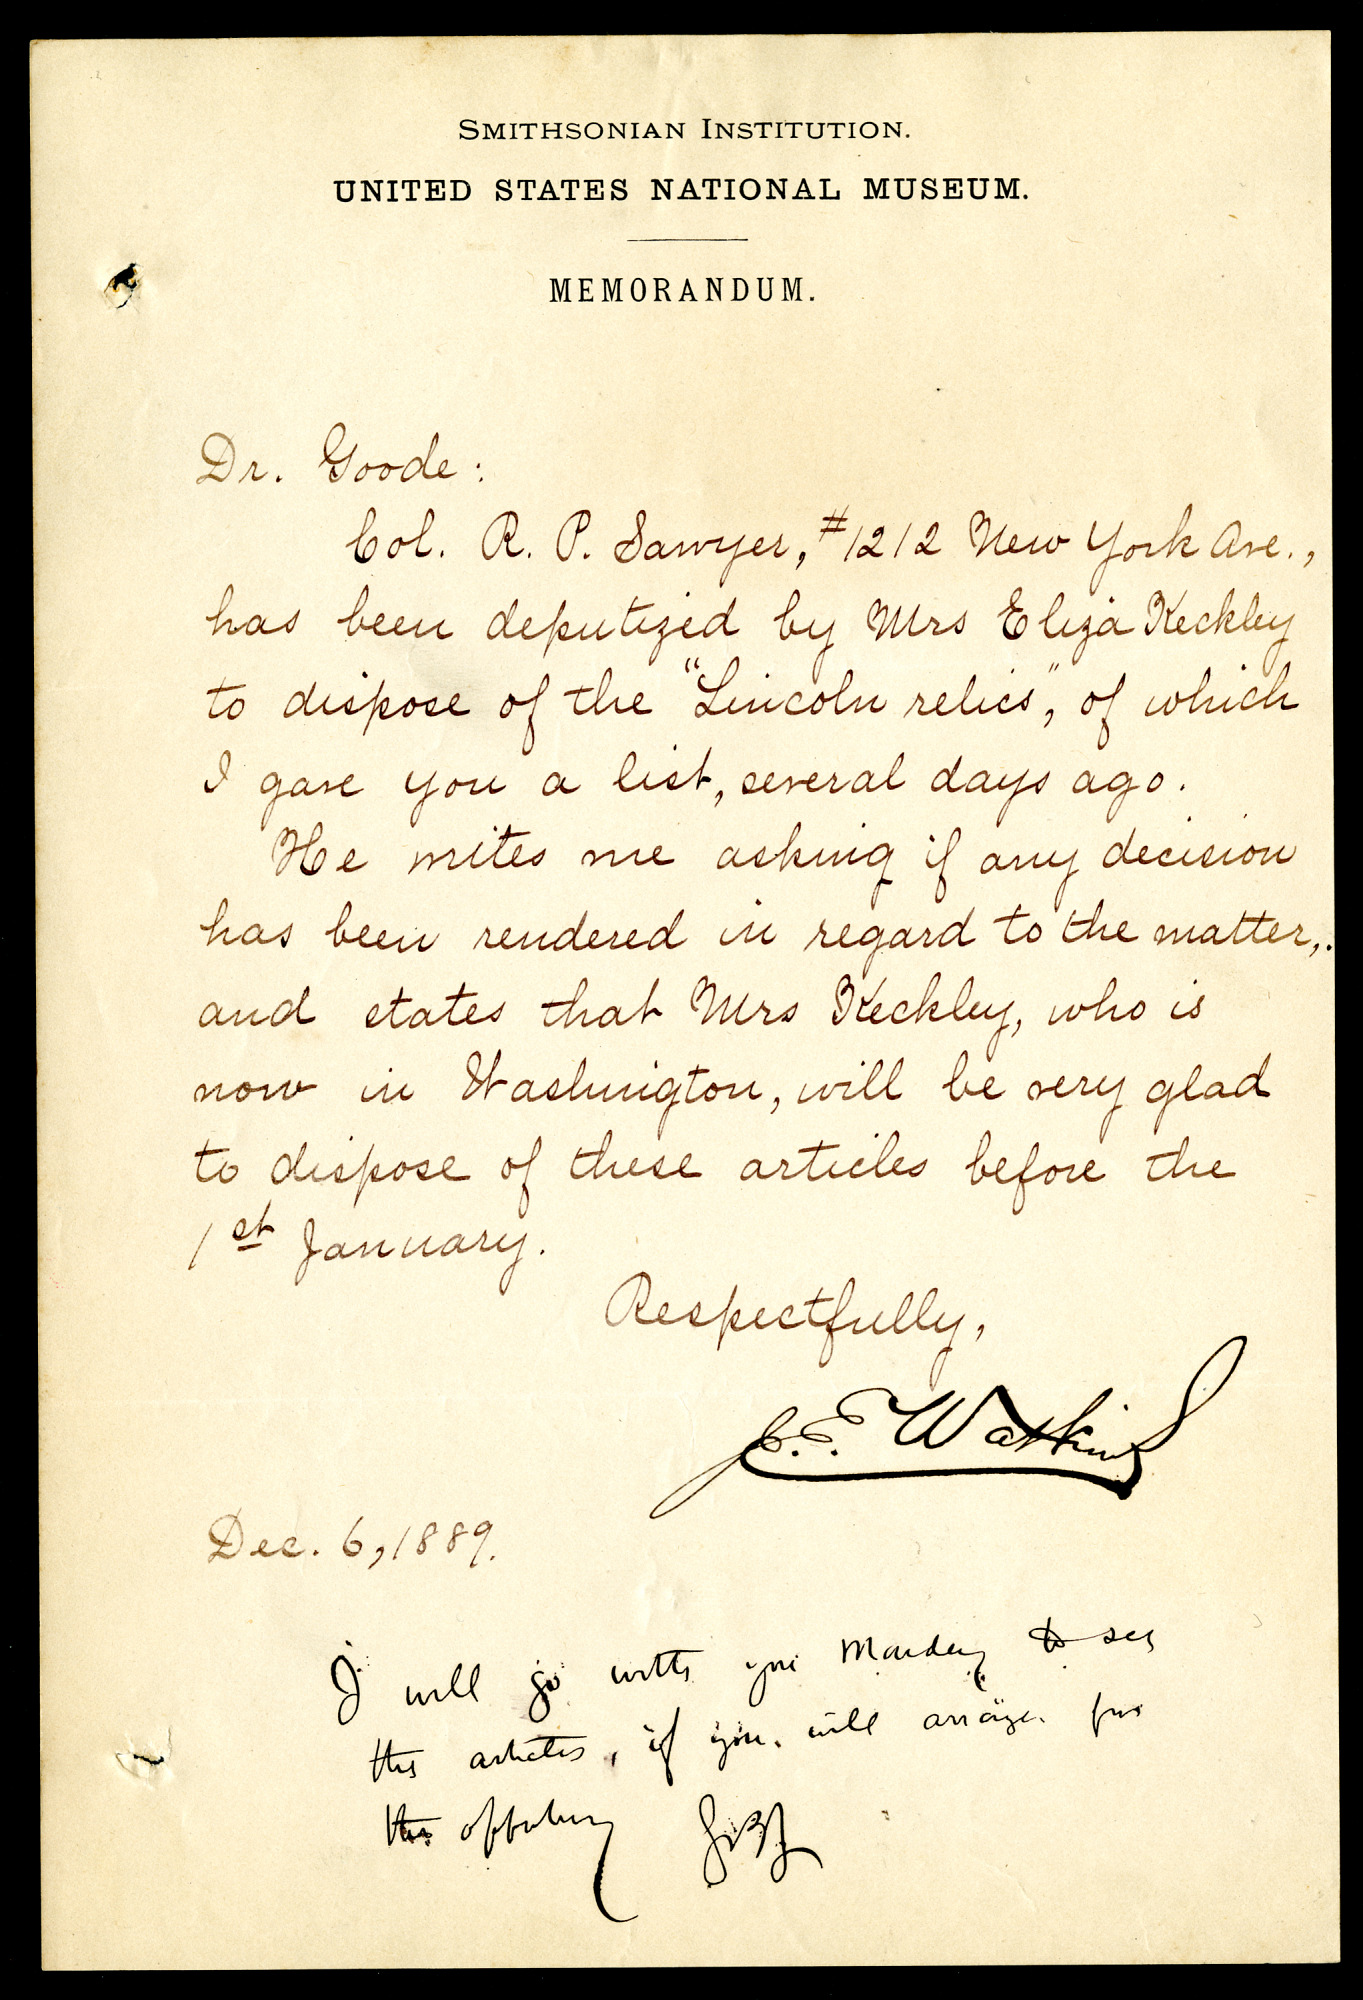 SMITHSONIAN INSTITUTION.
UNITED STATES NATIONAL MUSEUM.
MEMORANDUM.
Dr. Goode:
Col. R. P. Sawyer, #1212 New York Ave.,
has been deputized by Mrs Eliza Keckley
to dispose of the "Lincoln relics", of which
I gave you a list, several days ago.
He writes me asking if any decision
has been rendered in regard to the matter,
and states that Mrs Keckley, who is
now in Washington, will be very glad
to dispose of these articles before the
1st January.
Respectfully,
J. E. Watkins
Dec. 6, 1889.
I will go with you Monday to see
the articles, if you will arrange for
the